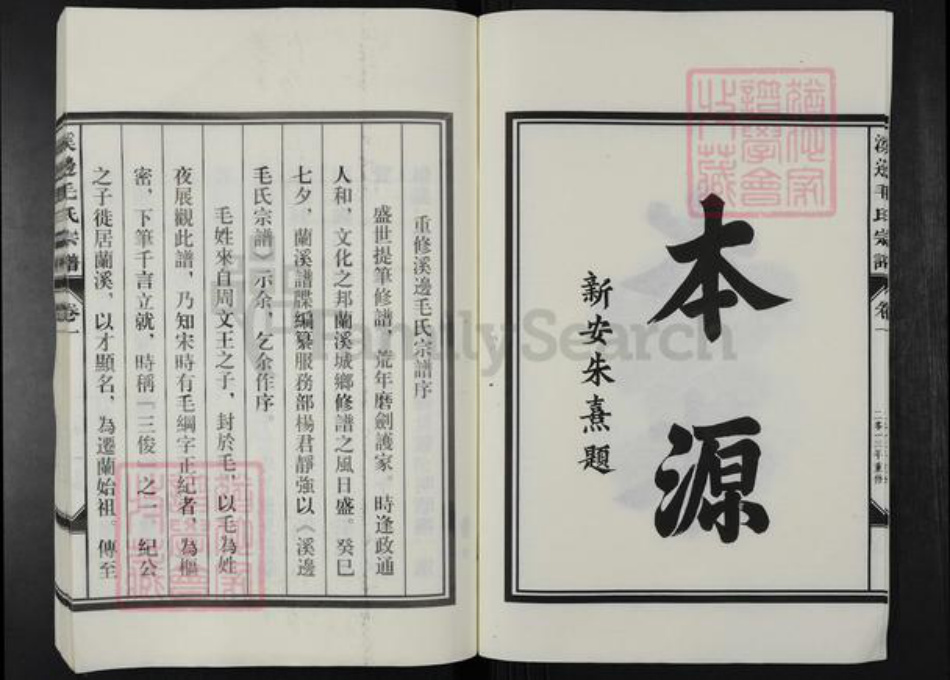 本源
新安朱熹題
二零一三年重修
重修溪邊毛氏宗譜序
盛世提筆修譜，荒年磨劍護家。時逢政通
人和，文化之邦蘭溪城鄉修譜之風日盛。癸巳
七夕，蘭溪譜牒編纂服務部楊君靜強以《溪邊
毛氏宗譜》示余，乞余作序。
毛姓來自周文王之子，封於毛，以毛為姓
夜展觀此譜，乃知宋時有毛綱字正紀者，為樞
密，下筆千言立就，時稱「三俊」之一。紀公
之子徙居蘭溪，以才顯名，為遷蘭始祖。傳至
溪邊毛氏宗譜
卷一
FamilySearch